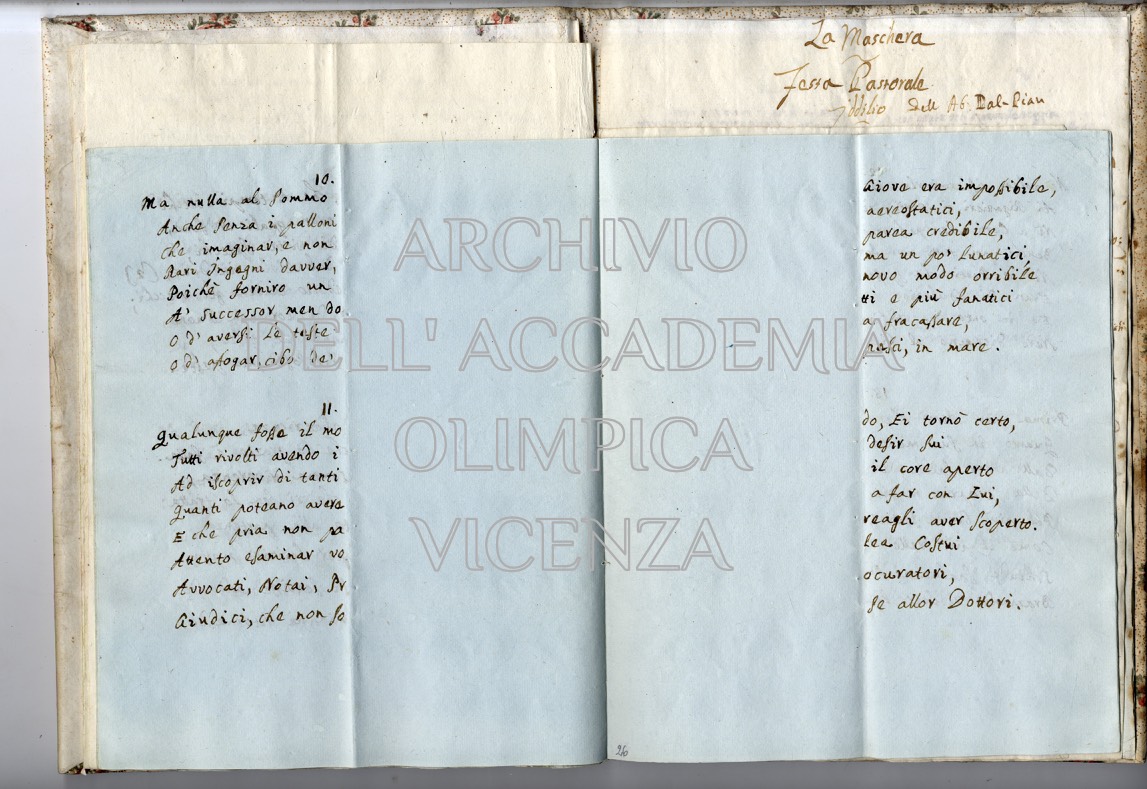 La Maschera
Festa Pastorale
Idilio dell Ab. Dal-Pian
10.
Ma nulla al Sommo Giove era impossibile,
Anche senza i palloni aereostatici,
Che imaginar, e non parea credibile,
Rari Ingegni davver, ma un po' lunatici,
Poichè forniro un novo modo orribile
A' successor men do tti e più fanatici
O d' aversi le teste a fracassare,
O d' afogar, cibo de' pesci, in mare.
11.
Qualunque fosse il mo do, Ei tornò certo,
Tutti rivolti avendo i desir sui
Ad iscoprir di tanti il core aperto
Quanti poteano avere a far con Lui,
E che pria non pa reagli aver scoperto.
Attento esaminar vo lea Costui
Avvocati, Notai, Pr ocuratori,
Giudici, che non so se allor Dottori.
26
ARCHIVIO
DELL' ACCADEMIA
OLIMPICA
VICENZA